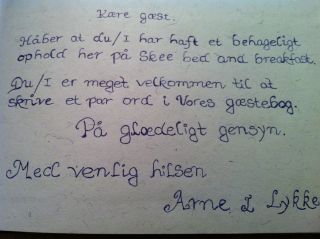 Kære gæst.
Håber at du/I har haft et behageligt
ophold her på Skee bed and breakfast.
Du/I er meget velkommen til at
skrive et par ord i Vores gæstebog.
På glædeligt gensyn.
Med venlig hilsen
Arne I Lykke